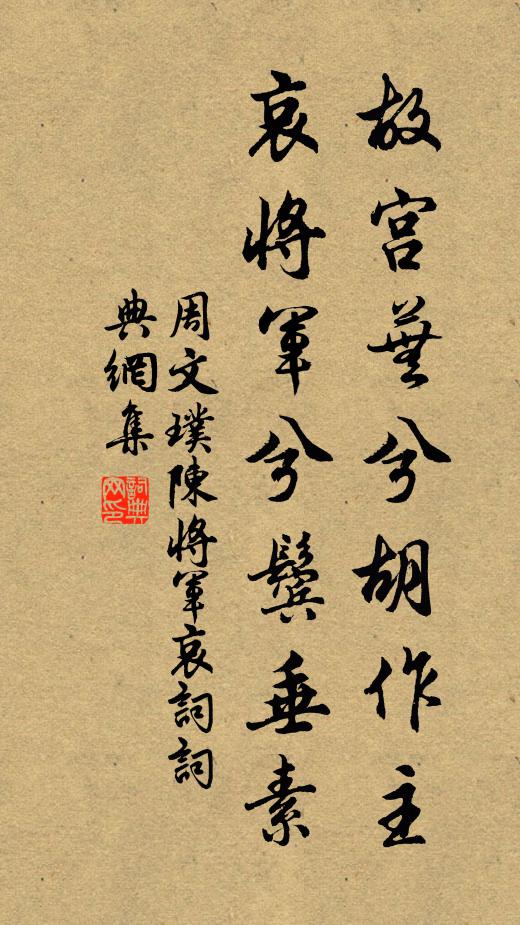 故宮蕪兮胡作主
哀將軍兮鬢垂素
周文璞陳將軍哀詞詞
典網集
詞典網印